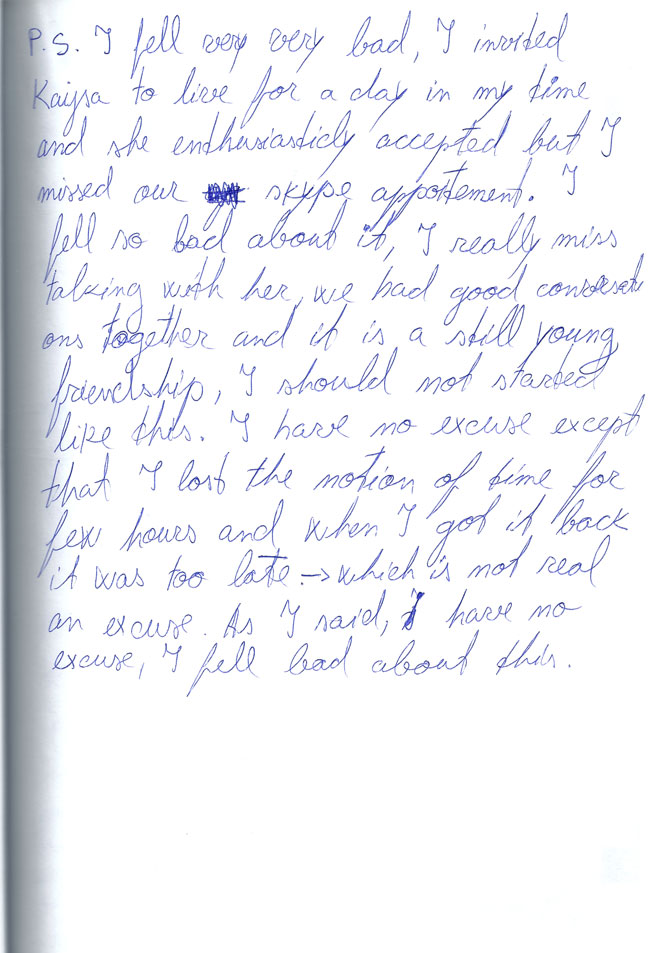 P.S. I fell very very bad, I invited
Kaijsa to live for a day in my time
and she enthusiasticly accepted but I
missed our skype appointement. I
fell so bad about it, I really miss
talking with her, we had good conversati
ons together and it is a still young
friendship, I should not started
like this. I have no excuse except
that I lost the notion of time for
few hours and when I got it back
it was too late → which is not real
an excuse. As I said, I have no
excuse, I fell bad about this.